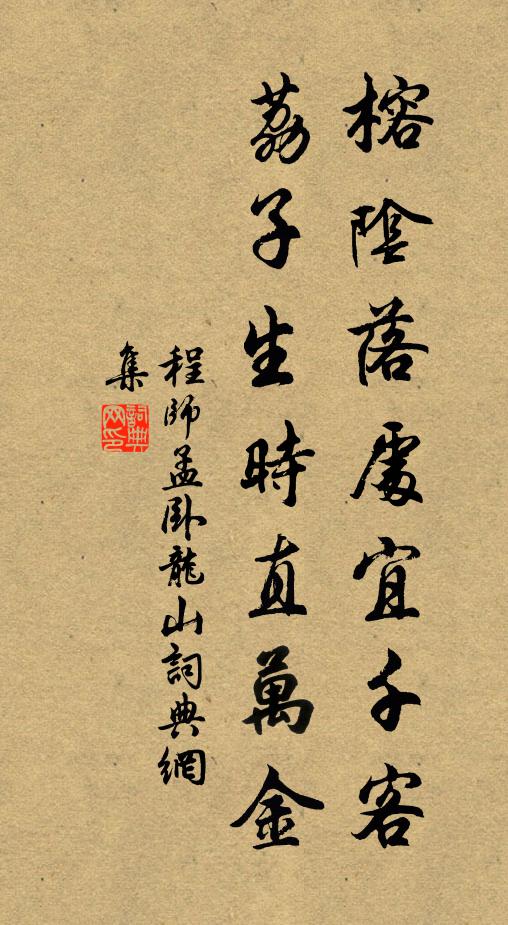 榕陰落處宜千客
荔子生時直萬金
程師孟臥龍山詞典網
集
詞典网印